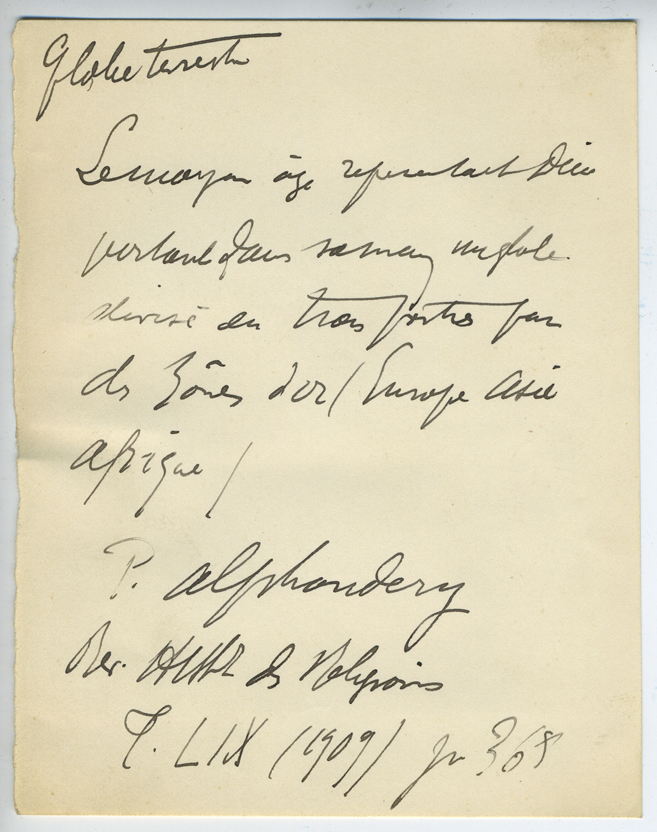 Globe terrestre
Le moyen âge représentait Dieu
portant dans sa main un globe
divisé en trois parties par
des zônes d'or (Europe Asie
Afrique)
P. Alphandery
Rev. Hist des Religions
T. LIX (1909) p 368